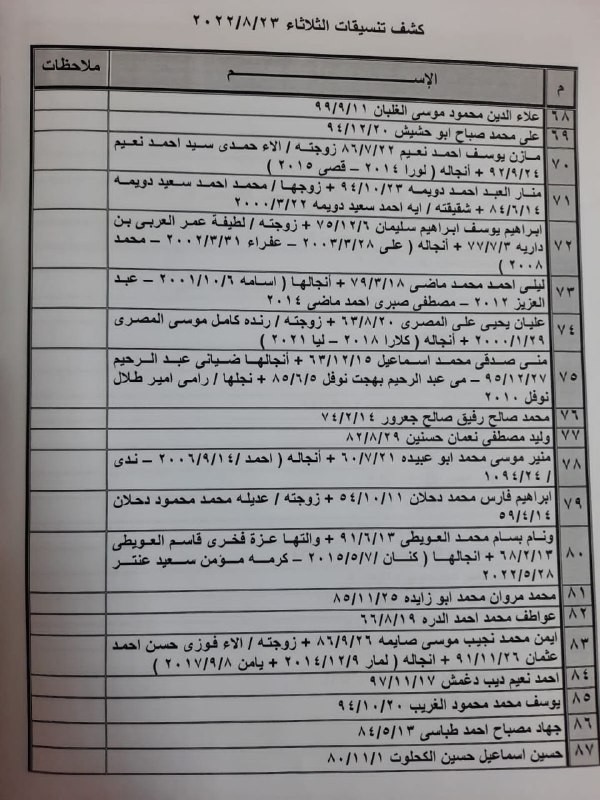 كشف تنسيقات الثلاثاء ٢٠٢٢/٨/٢٣
م الإســــم ملاحظات
٦٨ علاء الدين محمود موسى الغلبان ٩٩/٩/١١
٦٩ على محمد صباح ابو حشيش ٩٤/١٢/٢٠
٧٠ مازن يوسف احمد نعيم ٨٦/٧/٢٢ زوجته / الاء حمدى سيد احمد نعيم
٩٢/٩/٢٤ + أنجاله ( لورا ٢٠١٤ – قصى ٢٠١٥ )
٧١ منار العبد احمد دويمه ٩٤/١٠/٢٣ + زوجها / محمد احمد سعيد دويمه
٨٤/٦/١٤ + شقيقته / ايه احمد سعيد دويمه ٢٠٠٠/٣/٢٢
٧٢ ابراهيم يوسف ابراهيم سليمان ٧٥/١٢/٦ + زوجته / لطيفة عمر العربى بن
داريه ٧٧/٧/٣ + أنجاله ( على ٢٠٠٣/٣/٢٨ – عفراء ٢٠٠٢/٣/٣١ – محمد
٢٠٠٨ )
٧٣ ليلى احمد محمد ماضى ٧٩/٣/١٨ + أنجالها ( اسامه ٢٠٠١/١٠/٦ – عبد
العزيز ٢٠١٢ – مصطفى صبرى احمد ماضى ٢٠١٤
٧٤ عليان يحيى على المصرى ٦٣/٨/٢٠ + زوجته / رنده كامل موسى المصرى
٢٠٠٠/١/٢٩ + أنجاله ( كلارا ٢٠١٨ – ليا ٢٠٢١ )
٧٥ منى صدقى محمد اسماعيل ٦٣/١٢/١٥ + أنجالها ضيائى عبد الرحيم
٩٥/١٢/٢٧ – مى عبد الرحيم بهجت نوفل ٨٥/٦/٥ + نجلها / رامى امير طلال
نوفل ٢٠١٠
٧٦ محمد صالح رفيق صالح جعرور ٧٤/٢/١٤
٧٧ وليد مصطفى نعمان حسنين ٨٢/٨/٢٩
٧٨ منير موسى محمد ابو عبيده ٦٠/٧/٢١ + أنجاله ( احمد /٢٠٠٦/٩/١٤ – ندى
/ ١٠٩٤/٢٤
٧٩ ابراهيم فارس محمد دحلان ٥٤/١٠/١١ + زوجته / عديله محمد محمود دحلان
٥٩/٤/١٤
٨٠ ونام بسام محمد العويطى ٩١/٦/١٣ + والتها عزة فخرى قاسم العويطى
٦٨/٢/١٣ + أنجالها ( كنان /٢٠١٥/٥/٧ – كرمه مؤمن سعيد عنتر
٢٠٢٢/٥/٢٨
٨١ محمد مروان محمد ابو زايده ٨٥/١١/٢٥
٨٢ عواطف محمد احمد الدره ٦٦/٨/١٩
٨٣ ايمن محمد نجيب موسى صايمه ٨٦/٩/٢٦ + زوجته / الاء فوزى حسن احمد
عثمان ٩١/١١/٢٦ + أنجاله ( لمار ٢٠١٤/١٢/٩ + يامن ٢٠١٧/٩/٨ )
٨٤ احمد نعيم ديب دغمش ٩٧/١١/١٧
٨٥ يوسف محمد محمود الغريب ٩٤/١٠/٢٠
٨٦ جهاد مصباح احمد طباسى ٨٤/٥/١٣
٨٧ حسين اسماعيل حسين الكحلوت ٨٠/١١/١